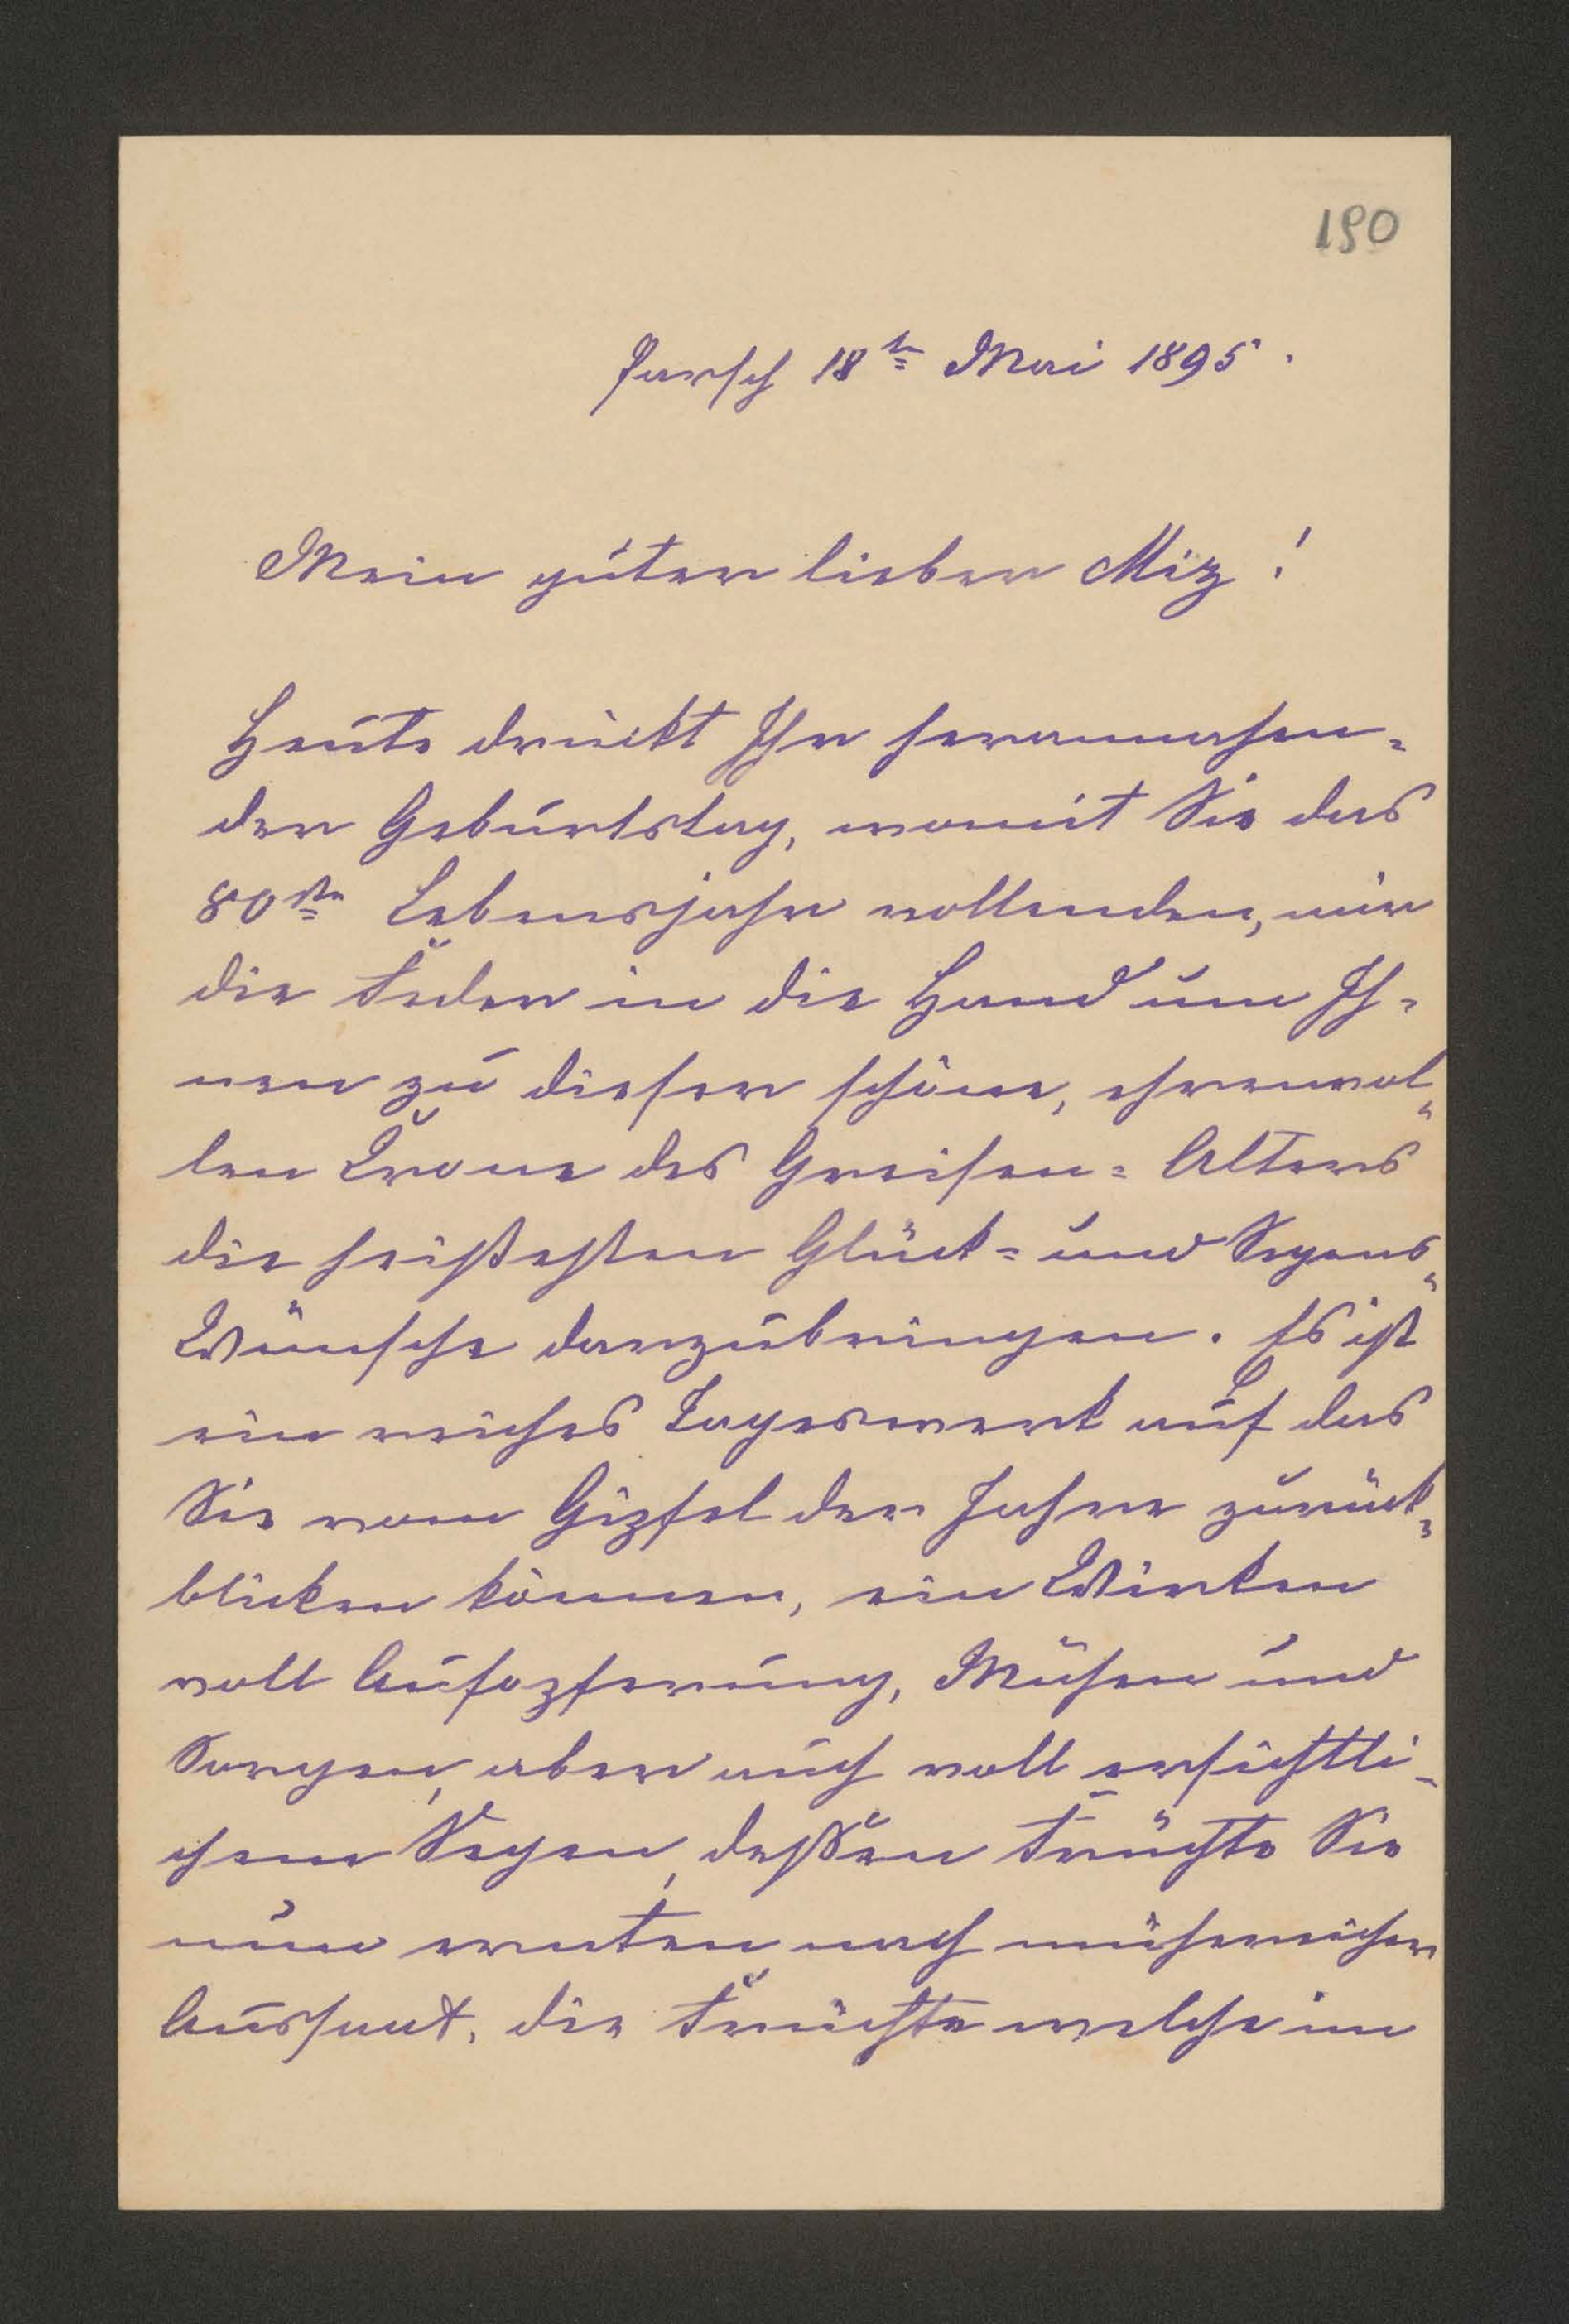 190
Parsch 18t. Mai 1895.
Mein guter lieber Miz!
Heute drückt Ihr herannahen-
der Geburtstag, womit Sie das
80ste Lebensjahr vollenden, mir
die Feder in die Hand um Ih-
nen zu dieser schöne, ehrenvol-
len Crone des Greisen-Alters
die heißesten Glück- und Segens-
Wünsche darzubringen. Es ist
ein reiches Tageswerk auf das
Sie vom Gipfel der Jahre zurück-
blicken können, ein Wirken
voll Aufopferung, Mühen und
Sorgen, aber auch voll ersichtli-
chem Segen, deßen Früchte Sie
nun ernten nach mühereicher
Aussaat, die Früchte welche im